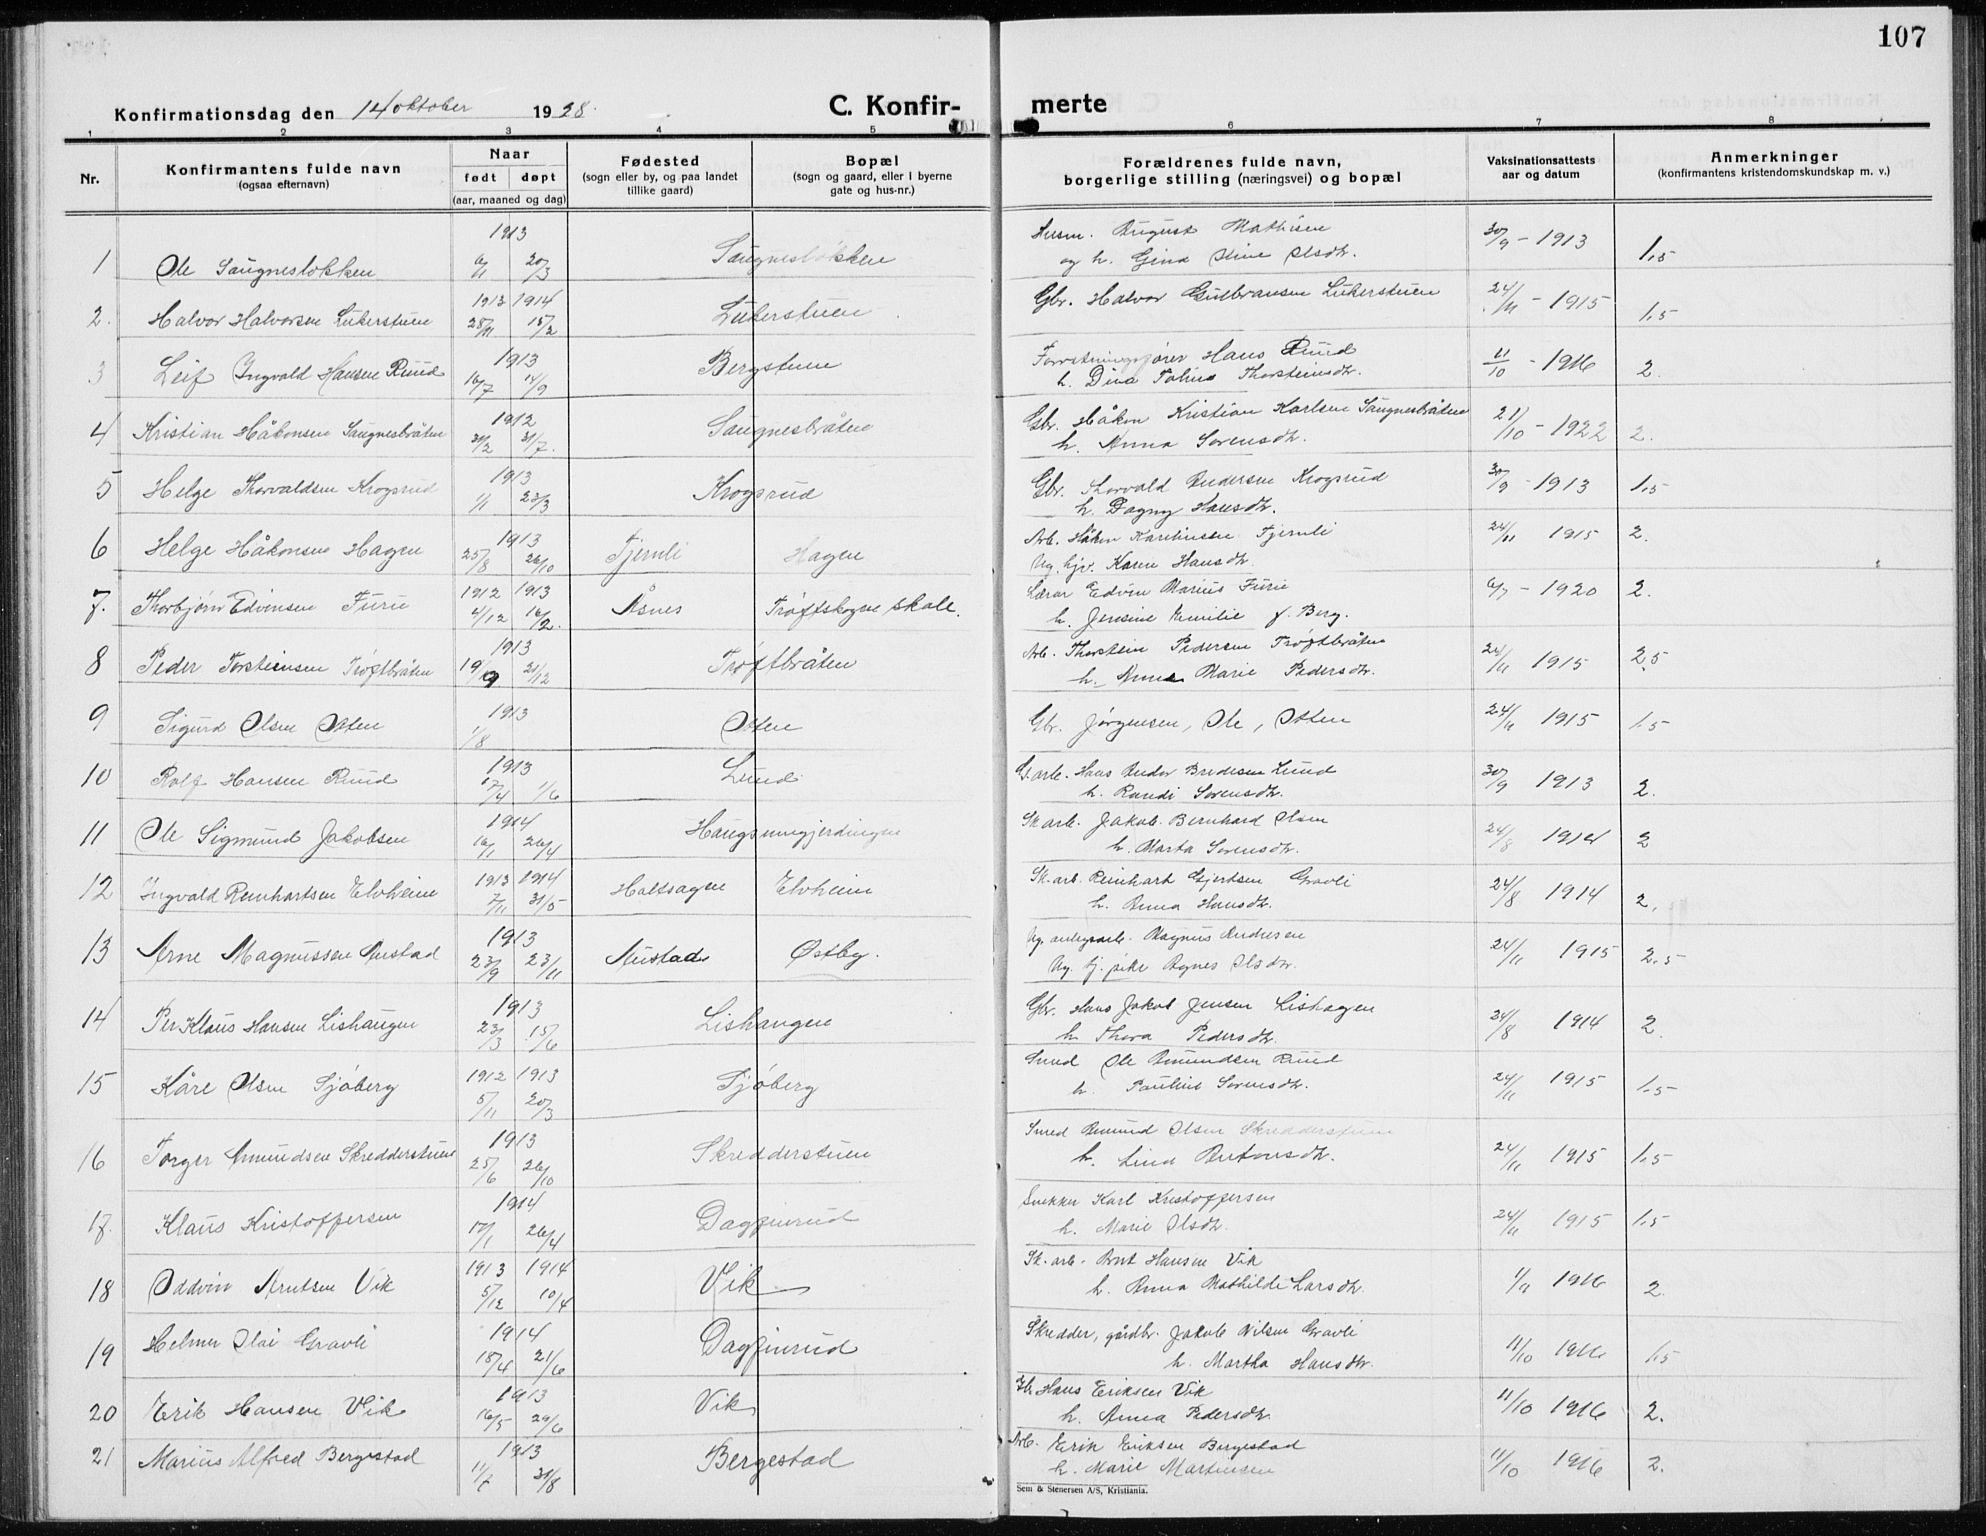 107
Konfirmationsdag den 14 oktober 1928.
C. Konfir-
merte
1 2 3 4 5 6 7 8
Nr.
Konfirmantens fulde navn
(ogsaa efternavn)
Naar
født døpt
(aar, maaned og dag)
Fødested
(sogn eller by, og paa landet
tillike gaard)
Bopæl
(sogn og gaard, eller i byerne
gate og hus-nr.)
Forældrenes fulde navn,
borgerlige stilling (næringsvei) og bopæl
Vaksinationsattests
aar og datum
Anmerkninger
(konfirmantens kristendomskundskap m. v.)
1913
August Mathisen 30/9 - 1913
1 Ole Saugnesløkken 6/1 20/3 Saugnesløkken og h. Gina Stine Olsdtr. 1,5
1913 1914
Gbr. Halvor Gulbransen Lükerstuen 24/11 - 1915
2. Halvor Halvorsen Lükerstuen 28/11 15/2 Lükerstuen 1,5
1913
Hans Ruud
3 Leif Ingvald Hansen Ruud 16/7 14/9 Bergstuen h. Dina Thorsteinsdtr. 11/10 - 1916 2.
1912
Gbr. Håkon Kristian Karlsen Saugnesbråten
4 Kristian Håkonsen Saugnesbråten 31/7. Saugnesbråten h. Anna Sorensdtr. 21/10 - 1922 2.
1913
Gbr. Thorvald Andersen Krogsrud
5 Helge Thorvaldsen Krogsrud 1/1 23/3 Krogsrud h. Dagny Hansdtr. 30/9 - 1913 1,5
1913
Arb. Håkon Karelinsen Fjernli
6 Helge Håkonsen Hagen 25/8 26/10 Fjernli Hagen Ug. Karen Hansdtr. 24/11 1915 2.
1912 1913
Lærer Edvin Marius Furu
7. Thorbjørn Edvinsen Furu 4/12 16/2. Åsnes Trøftskogen skole. h. Jensine Emilie f. Berg. 6/7 - 1920 2.
1913
Arb. Thorstein Pedersen Trøftbråten
8 Peder Torsteinsen Trøftbråten 19/9 21/12 Trøftbråten h. Anne Marie Pedersdtr. 24/11 1915 2,5
1913
9 Sigurd Olsen Otten 1/8 Otten Gbr. Jørgensen, Ole, Otten 24/11 1915 1,5
1913
Hans Andor Bredesen Lund
10 Rolf Hansen Ruud 17/4 1/6 Lund h. Randi Sorensdtr. 30/9 1913 2.
1914
Sk. arb. Jakob Bernhard Olsen
11 Ole Sigmund Jakobsen 16/1 26/4 Haugsmugjerdingen h. Marta Sorensdtr. 24/8 1914 2
1913 1914
Sk. arb. Reinhart Gjertsen Gravli
12 Ingvald Reinhartsen Elvheim 7/11 31/5 Holtsagen Elvheim h. Anna Hansdtr. 24/8 1914 2.
1913
Ug. anlegsarb. Magnus Andresen
13 Arne Magnussen Austad 23/9 23/11 Austad Østby. Ug. tj. pike Agnes Olsdtr. 24/11 1915 2,5
1913
Gbr. Hans Jakob Jensen Lishagen
14 Per Klaus Hansen Lishaugen 23/3 15/6 Lishaugen h. Thora Pedersdtr. 24/8 1914 2.
1912 1913
Smed Ole Amundsen Ruud
15 Kåre Olsen Sjøberg 5/11 20/3 Sjøberg h. Pauline Sorensdtr. 24/11 1915 1,5
1913
Smed Amund Olsen Skredderstuen
16 Torger Amundsen Skredderstuen 25/6 26/10 Skredderstuen h. Lina Antonsdtr. 24/11 1915 1,5
1914
Snekker Karl Kristoffersen
17. Klaus Kristoffersen 17/1 26/4 Dagfinrud h. Marie Olsdtr. 24/11 1915 1,5
1913 1914
Sk. arb. Arnt Hansen Vik
18 Oddvin Arntsen Vik 5/12 10/4 Vik h. Anna Mathilde Larsdtr. 1/9 1916 2.
1914
Skredder, gårdbr. Jakob Nilsen Gravli
19 Helmer Olai Gravli 18/4 21/6 Dagfinrud h. Martha Hansdtr. 11/10 1916 1,5
1913
Hans Eriksen Vik
20 Erik Hansen Vik 16/5 29/6 Vik h. Anna Pedersdtr. 11/10 1916 2.
1913
Arb. Erik Eriksen Bergestad
21 Marius Alfred Bergestad 31/8 Bergestad h. Marie Martinsen 11/10 1916 2.
Sem & Stenersen A/S, Kristiania.